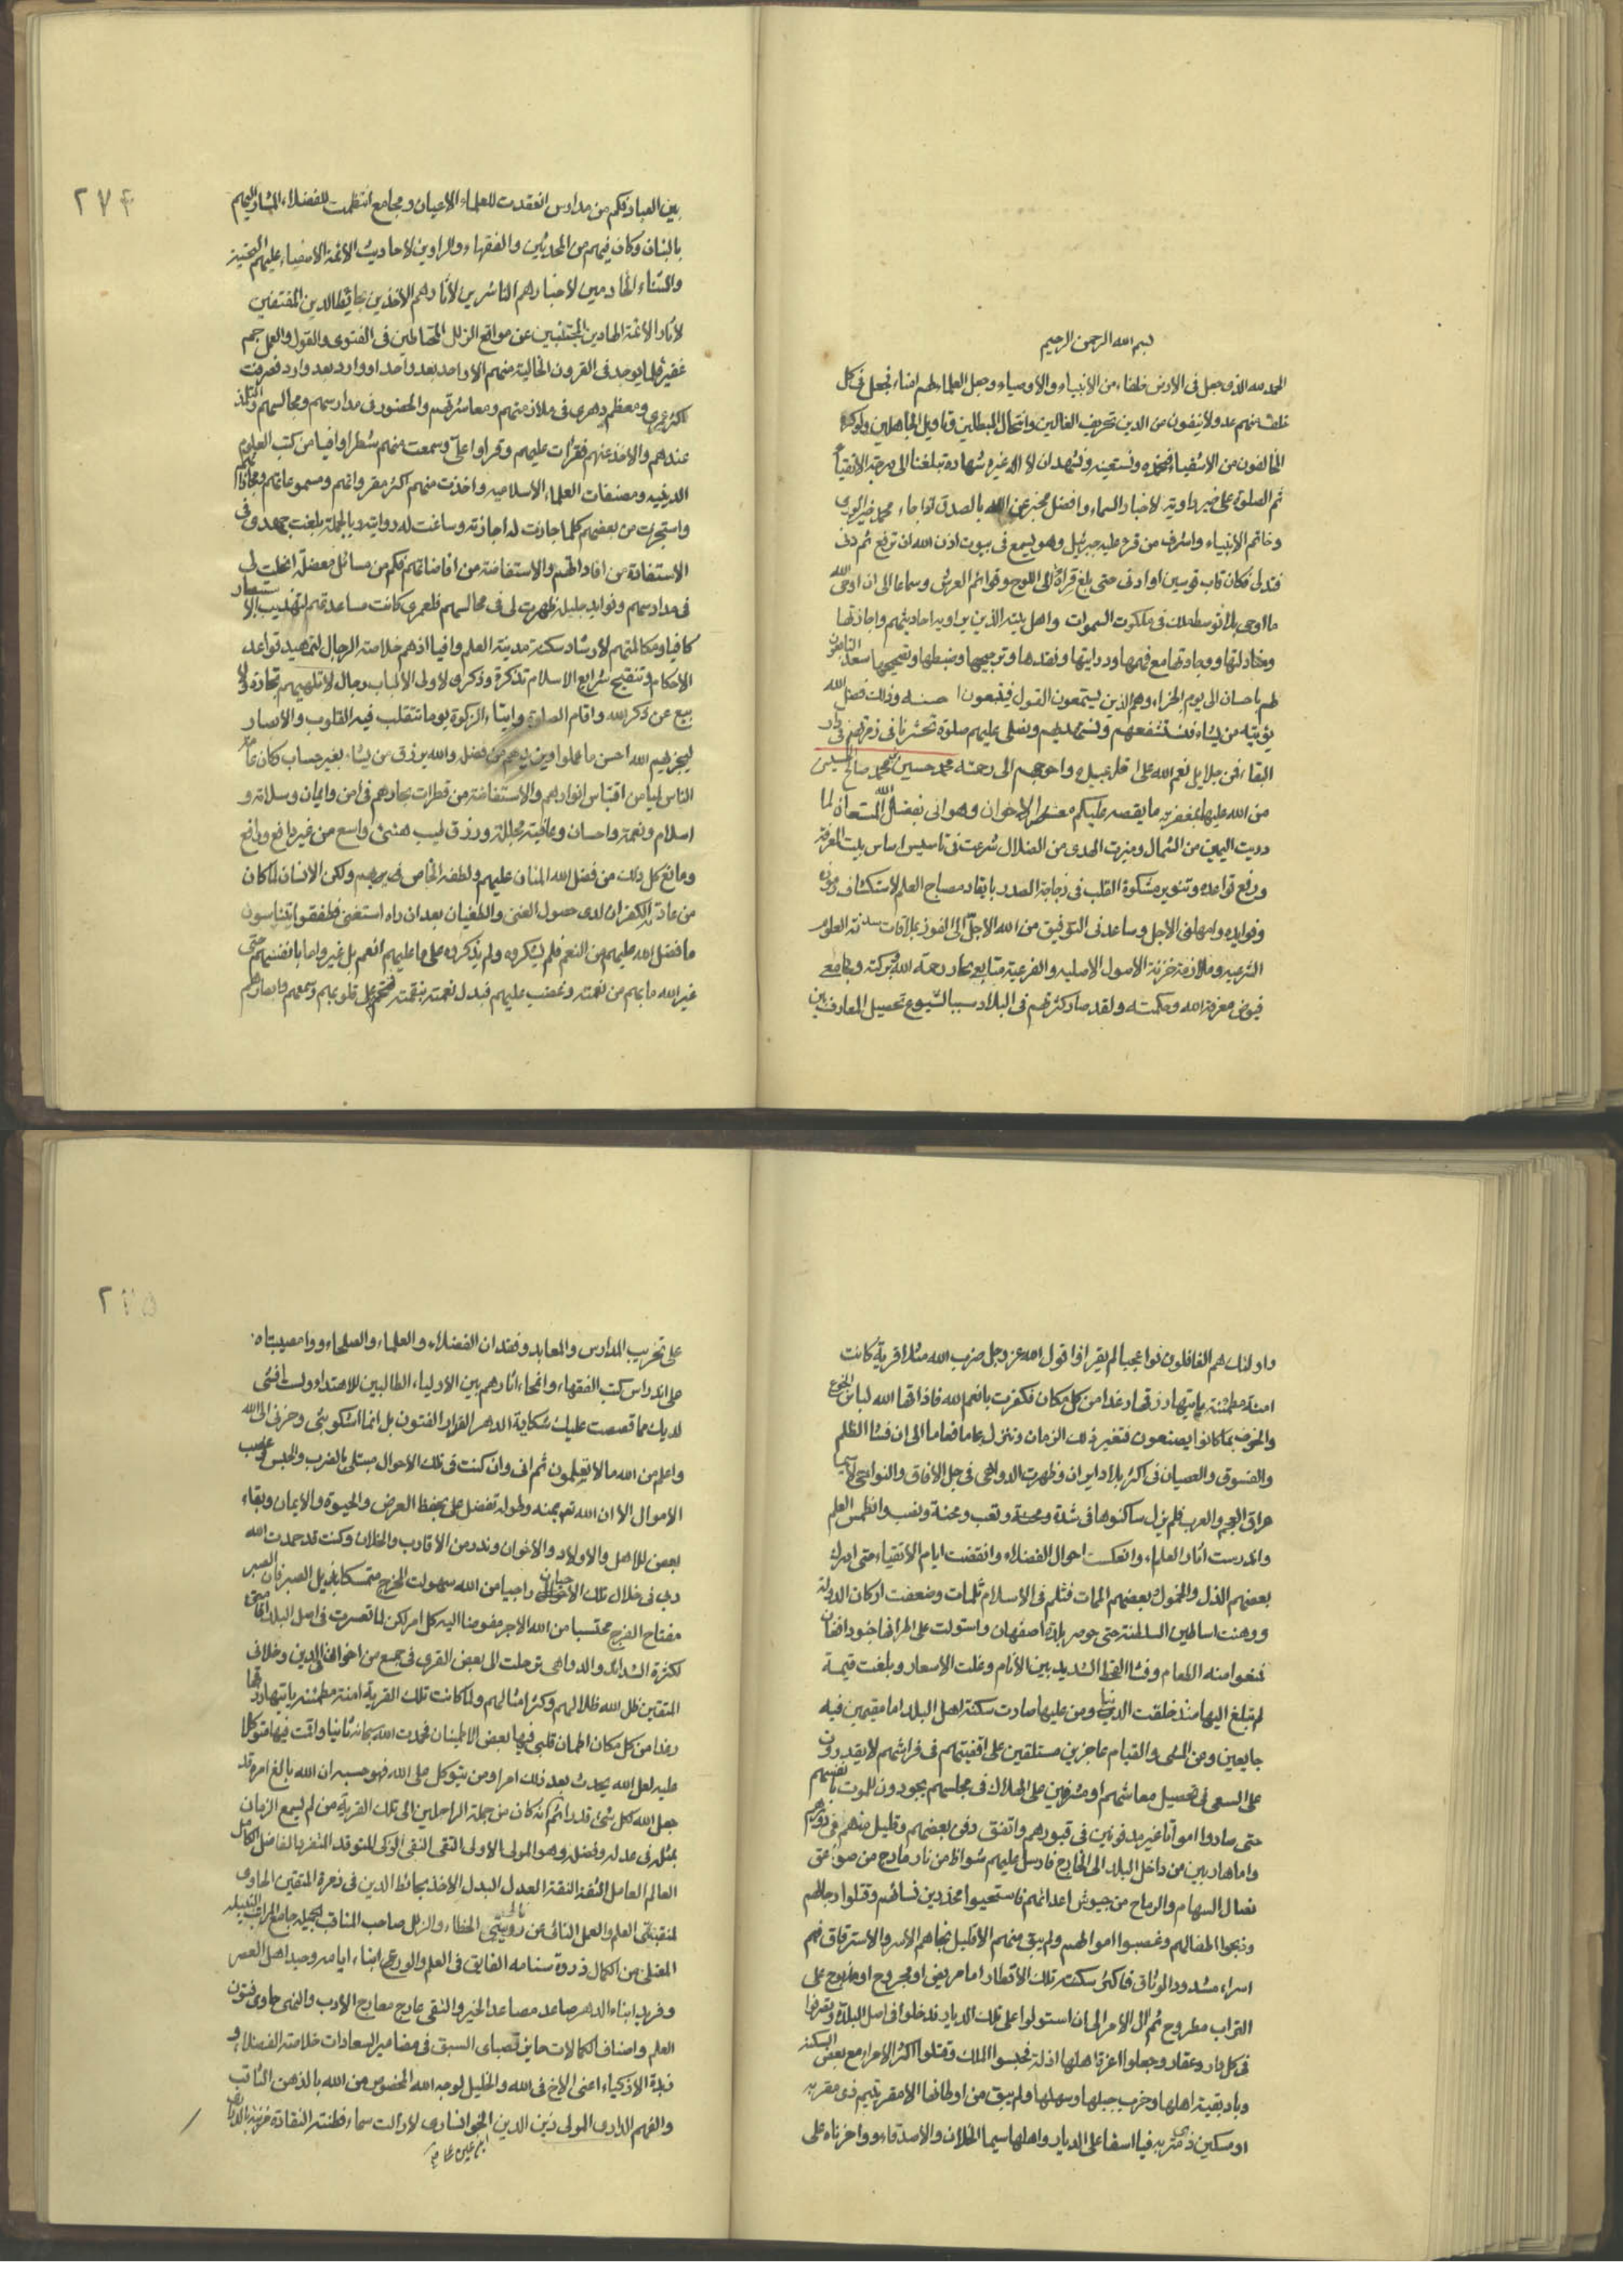 بسم الله الرحمن الرحيم
الحمد لله الذى جعل فى الارض خلفاء من الانبياء والاوصياء وجعل العلماء لهم امناء فجعل فى كل
خلف منهم عدولا ينفون من الدين تحريف الغالين وانتحال المبطلين وتاويل الجاهلين ولو كره
المخالفون من الاشقياء فنحمده ونستعينه ونشهد ان لا اله غيره شهادة تبلغنا الى درجة الاتقياء
ثم الصلوة على خير راوية لاخبار السماء وافضل مخبر عن الله بالصدق اذا جاء محمد خير الورى
وخاتم الانبياء واشرف من قرء عليه جبرئيل وهو يسمع فى بيوت اذن الله ان ترفع ثم دنى
فتدلى فكان قاب قوسين او ادنى حتى بلغ قراءة الى اللوح وقوائم العرش وسماعا الى ان اوحى الله
ما اوحى بلا توسط ملك فى ملكوت السموات واهل بيته الذين يراويه احاديثهم واجازتها
ومناولتها ووجادتها مع فهمها ودرايتها ونقدها وترجيحها وضبطها وتصحيحها سعد التابعون
لهم باحسان الى يوم الجزاء وهم الذين يستمعون القول فيتبعون احسنه وذلك فضل الله
يؤتيه من يشاء فنستشفعهم ونسلم عليهم ونصلى عليهم صلوة تحشرنا فى زمرتهم فى دار
البقاء فمن جلايل نعم الله على اقل عبيده واحوجهم الى رحمته محمد حسين بن محمد صالح الحسينى
من الله عليهما بغفرانه ما يقصه عليكم معشر الاخوان وهو انى بفضل الله المستعان لما
دريت اليمين من الشمال وميزت الهدى من الضلال شرعت فى تاسيس اساس بيت المعرفة
ورفع قواعده وتنوير مشكوة القلب فى زجاجة الصدر بايقاد مصباح العلم لاستكشاف رموزه
وفوايده وامهلنى الاجل وساعدنى التوفيق من الله الاجل الى الفوز بملاقات سدنة العلوم
الشرعيه وملازمة خزنة الاصول الاصليه والفرعية منابع بحار رحمة الله وبركته ومجامع
فيوض معرفة الله وحكمته ولقد صار كثرتهم فى البلاد سببا لشيوع تحصيل المعارف بين
٢٧۴
بين العباد فكم من مدارس انعقدت للعلماء الاعيان ومجامع انتظمت للفضلاء المشار اليهم
بالبنان وكان فيهم من المحدثين والفقهاء والراوين لاحاديث الائمة الاصفياء عليهم التحية
والثناء الخادمين لاخبارهم الناشرين لآثارهم الآخذين بحائطة الدين المقتفين
لآثار الائمة الهادين المجتنبين عن مواقع الزلل المحتاطين فى الفتوى والقول والعمل جم
غفير قلما يوجد فى القرون الخالية منهم الا واحد بعد واحد او وارد بعد وارد فصرفت
اكثر عمرى ومعظم دهرى فى ملازمتهم ومعاشرتهم والحضور فى مدارسهم ومجالسهم والتلمذ
عندهم والاخذ عنهم فقرات عليهم وقراوا على وسمعت منهم شطرا وافيا من كتب العلوم
الدينيه ومصنفات العلماء الاسلاميه واخذت منهم اكثر مقرواتهم ومسموعاتهم ومجازاتهم
واستجزت من بعضهم كلما جازت له اجازته وساغت له روايته وبالجملة بلغت جهدى فى
الاستفادة من افاداتهم والاستفاضة من افاضاتهم فكم من مسائل معضلة انحلت لى
فى مدارسهم وفوايد جليلة ظهرت لى فى مجالسهم فلعمرى كانت مساعدتهم لتهذيب الاستبصار
كافيا ومكالمتهم لارشاد سكنة مدينة العلم وافيا اذ هم خلاصة الرجال لتمهيد قواعد
الاحكام وتنقيح شرايع الاسلام تذكرة وذكرى لاولى الالباب رجال لا تلهيهم تجارة ولا
بيع عن ذكر الله واقام الصلوة وايتاء الزكوة يوما تتقلب فيه القلوب والابصار
ليجزيهم الله احسن ما عملوا ويزيدهم من فضله والله يرزق من يشاء بغير حساب وكان عامة
الناس ايامن اقتباس انوارهم والاستفاضة من قطرات بحارهم فى امن وايمان وسلامة و
اسلام ونعمة واحسان وعافية مجللة ورزق طيب هنئ واسع من غير دافع ورافع
ومانع كل ذلك من فضل الله المنان عليهم ولطفه الخاص بهم ولكن الانسان لما كان
من عادته الكفران لدى حصول الغنى والطغيان بعد ان راه استغنى فطفقوا يتناسون
ما فضل الله عليهم من النعم فلم يشكروه ولم يذكروه على ما عليهم انعم بل غيروا ما بانفسهم حتى
غير الله ما بهم من نعمته وغضب عليهم فبدل نعمته بنقمته فختم على قلوبهم وسمعهم وابصارهم
واولئك هم الغافلون فوا عجبا لم يقراوا قول الله عز وجل ضرب الله مثلا قرية كانت
امنة مطمئنة ياتيها رزقها رغدا من كل مكان فكفرت بانعم الله فاذاقها الله لباس الجوع
والخوف بما كانوا يصنعون فتغير ذلك الزمان وتنزل عاما فعاما الى ان فشا الظلم
والفسوق والعصيان فى اكثر بلاد ايران وظهرت الدواهى فى جل الآفاق والنواحى لا سيما
عراق العجم والعرب فلم يزل ساكنوها فى شدة ومحنة وتعب ومحنة ونصب وانطمس العلم
واندرست آثار العلماء وانعكست احوال الفضلاء وانقضت ايام الاتقياء حتى ادرك
بعضهم الذل والخمول وبعضهم الممات فثلم فى الاسلام ثلمات وضعفت اركان الدولة
ووهنت اساطين السلطنة حتى حوصر بلدة اصفهان واستولت على اطرافها جنود افغان
فمنعوا منه الطعام وفشا القحط الشديد بين الانام وغلت الاسعار وبلغت قيمة
لم تبلغ اليها منذ خلقت الدنيا ومن عليها صارت سكنة اهل البلد اما مقيمين فيه
جايعين وعن المشى والقيام عاجزين مستلقين على اقفيتهم فى فراشهم لا يقدرون
على السعى فى تحصيل معاشهم او مشرفين على الهلاك فى مجلسهم يجودون للموت بانفسهم
حتى صاروا امواتا غير مدفونين فى قبورهم واتفق دفن بعضهم وقليل منهم فى دورهم
واما هاربين من داخل البلد الى الخارج فارسل عليهم شواظ من نار مارج من صواعق
نصال السهام والرماح من جيوش اعدائهم فاستحيوا مخدرين نسائهم وقتلوا رجالهم
وذبحوا اطفالهم وغصبوا اموالهم ولم يبق منهم الا قليل نجاهم الاسر والاسترقاق فهم
اسراء مشدود الوثاق فاكثر سكنة تلك الاقطار اما مريض او مجروح او مذبوح على
التراب مطروح ثم ال الامر الى ان استولوا على تلك الديار فدخلوا فى اصل البلدة وتصرفوا
فى كل دار وعقار وجعلوا اعزة اهلها اذلة فحبسوا الملك وقتلوا اكثر الامراء مع بعض السكنة
وباد بقية اهلها وخرب جبلها وسهلها ولم يبق من اوطانها الا مقر يتيم ذى مقربه
او مسكين ذى متربه فيا اسفا على الديار واهلها سيما الخلان والاصدقاء ووا حزناه على
٢٧۵
على تخريب المدارس والمعابد وفقدان الفضلاء والعلماء والصلحاء ووا مصيبتاه
على اندراس كتب الفقهاء وانمحاء آثارهم بين الاولياء الطالبين للاهتداء ولست اقتفى
لديك مما قصصت عليك شكاية الدهر الغرار الفتون بل انما اشكو بثى وحزنى الى الله
واعلم من الله ما لا تعلمون ثم انى وان كنت فى تلك الاحوال مبتلى بالضرب والحبس وغصب
الاموال الا ان الله تعالى بمنه وطوله تفضل على بحفظ العرض والحيوة والايمان وبقاء
بعض للاهل والاولاد والاخوان وندر من الاقارب والخلان وكنت قد حمدت الله
ربى فى خلال تلك الاحوال راجيا من الله سهولت المخرج متمسكا بذيل الصبر فان الصبر
مفتاح الفرج محتسبا من الله الاجر مفوضا اليه كل امر لكن لما تعسرت فى اصل البلد اقامتى
لكثرة الشدائد والدواهى ترحلت الى بعض القرى فى جمع من اخوانى فى الدين وخلانى
المتقين ظل الله ظلالهم وكثر امثالهم ولما كانت تلك القرية امنة مطمئنة ياتيها رزقها
رغدا من كل مكان اطمان قلبى فيها بعض الاطمينان فحمدت الله سبحانه ثانيا واقمت فيها متوكلا
عليه لعل الله يحدث بعد ذلك امرا ومن يتوكل على الله فهو حسبه ان الله بالغ امره قد
جعل الله لكل شئ قدرا ثم انه كان من جملة الراحلين الى تلك القرية من لم يسمع الزمان
بمثله فى عدله وفضله وهو المولى الاولى التقى النقى الذكى المتوقد المتفرد الفاضل الكامل
العالم العامل الثقة النقة العدل البدل الاخذ بحائط الدين فى زمرة المتقين الحاوى
لمنقبتى العلم والعمل النائى عن رذيلتى الخطاء والزلل صاحب المناقب الجميله جامع المراتب النبيله
المعتلى من الكمال ذروة سنامه الفايق فى العلم والورع ابناء ايامه وحيد اهل العصر
وفريد ابناء الدهر صاعد مصاعد الخير والتقى عارج معارج الادب والنهى حاوى فنون
العلم واصناف الكمالات حايز قصبات السبق فى مضامير السعادات خلاصة الفضلاء و
زبدة الاذكياء اعنى الاخ فى الله والخليل لوجه الله المخصوص من الله بالذهن الثاقب
والفهم الدارى المولى زين الدين الخوانسارى لا زالت سماء فطنته النقادة مزينة
ابن عين على